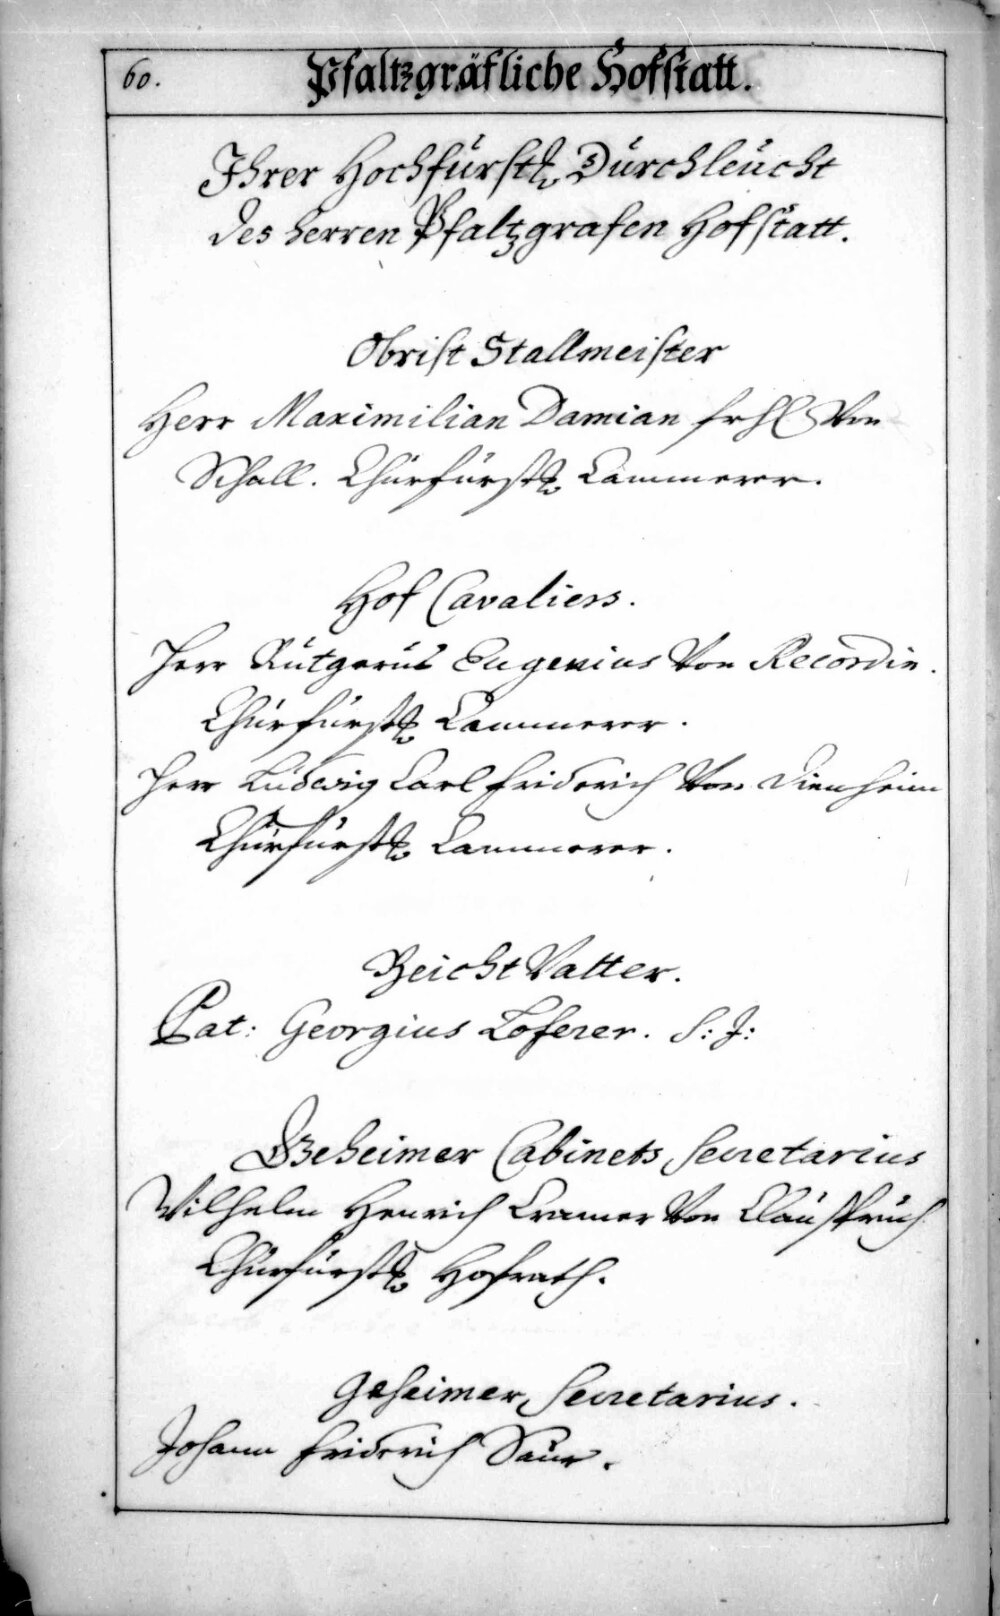 60.
Pfaltzgräfliche Hofstatt.
Ihrer Hochfürstl. Dürchleücht
des herren Pfaltzgrafen Hofstatt.
Obrist Stallmeister
Herr Maximilian Damian frhl von
Schall. Chürfürstl. Cammerer.
Hof Cavaliers.
Herr Rütgerüs Eugenius von Recordin.
Chürfürstl. Cammerer.
Herr Lüdwig Carl friderich von Dienheim
Chürfürstl. Cammerer.
Beicht Vatter.
Pat: Georgius Loferer. S: J:
Geheimer Cabinets Secretarius
Wilhelm Henrich Cramer von Claüsprüch
Chürfürstl. Hofrath.
Geheimer Secretarius.
Johann friderich Saür.